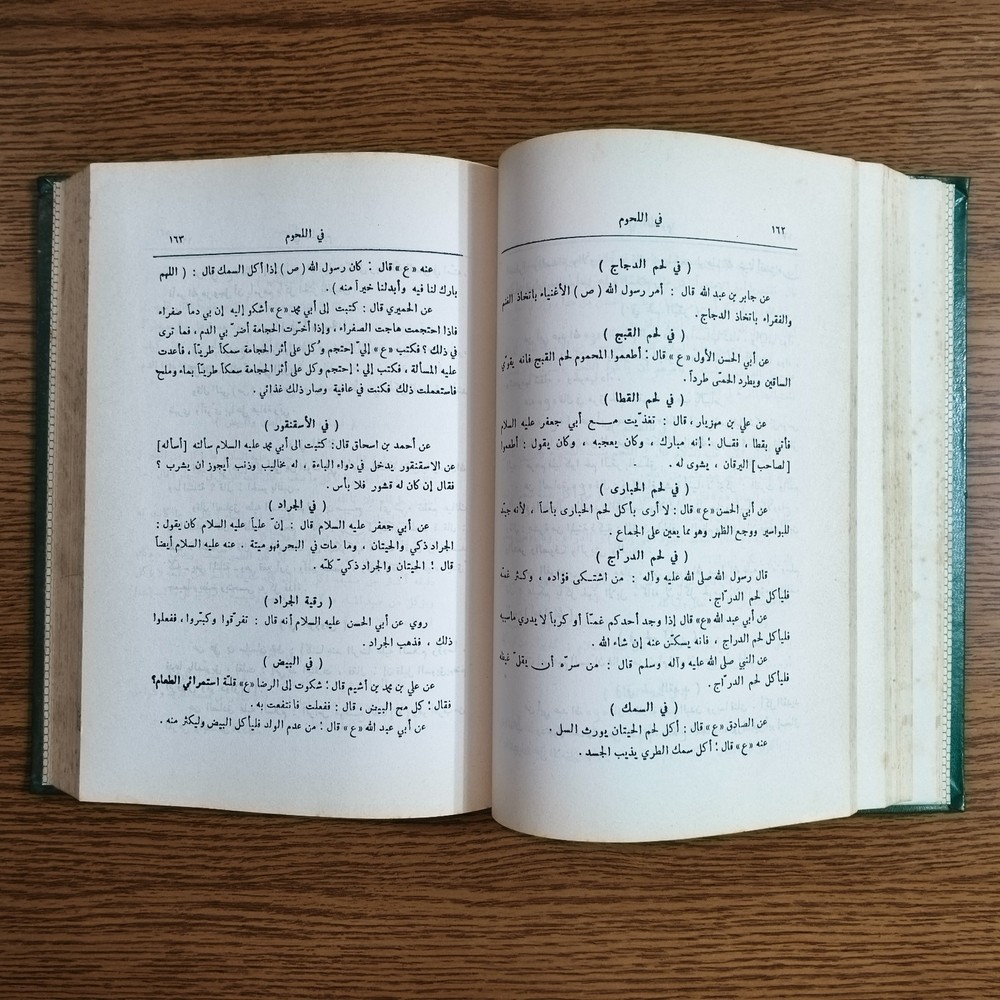 ١٦٢
في اللحوم
( في لحم الدجاج )
عن جابر بن عبد الله قال : أمر رسول الله ( ص ) الأغنياء باتخاذ الغنم
والفقراء باتخاذ الدجاج.
( في لحم القبج )
عن أبي الحسن الأول «ع» قال : أطعموا المحموم لحم القبج فانه يقوّي
الساقين ويطرد الحمّى طرداً .
( في لحم القطا )
عن علي بن مهزيار ، قال : تغذّيت مع أبي جعفر عليه السلام
فأتي بقطا ، فقال : إنه مبارك ، وكان يعجبه ، وكان يقول : أطعموا
[لصاحب] اليرقان ، يشوى له .
( في لحم الحبارى )
عن أبي الحسن «ع» قال : لا أرى بأكل لحم الحبارى بأساً ، لأنه جيّد
للبواسير ووجع الظهر وهو مما يعين على الجماع .
( في لحم الدرّاج )
قال رسول الله صلى الله عليه وآله : من اشتكى فؤاده ، وكثر غمّه
فليأكل لحم الدرّاج .
عن أبي عبد الله «ع» قال إذا وجد أحدكم غمّاً أو كرباً لا يدري ماسببه
فليأكل لحم الدراج ، فانه يسكّن عنه إن شاء الله .
عن النبي صلى الله عليه وآله وسلم قال : من سرّه أن يقلّ غيظه
فليأكل لحم الدرّاج .
( في السمك )
عن الصادق «ع» قال : أكل لحم الحيتان يورث السل .
عنه «ع» قال : أكل سمك الطري يذيب الجسد .
في اللحوم
١٦٣
عنه «ع» قال : كان رسول الله ( ص ) إذا أكل السمك قال : ( اللهم
بارك لنا فيه وأبدلنا خيراً منه ) .
عن الحميري قال : كتبت إلى أبي محمد «ع» أشكو إليه إن بي دماً صفراء
فاذا احتجمت هاجت الصفراء ، وإذا أخّرت الحجامة أضرّ بي الدم ، فما ترى
في ذلك ؟ فكتب «ع» إليّ إحتجم وكل على أثر الحجامة سمكاً طريّاً ، فأعدت
عليه المسألة ، فكتب إلي : إحتجم وكل على أثر الحجامة سمكاً طريّاً بماء وملح
فاستعملت ذلك فكنت في عافية وصار ذلك غذائي .
( في الأسقنقور )
عن أحمد بن اسحاق قال : كتبت الى أبي محمد عليه السلام سألته [أسأله]
عن الاسقنقور يدخل في دواء الباءة ، له مخاليب وذنب أيجوز ان يشرب ؟
فقال إن كان له قشور فلا بأس .
( في الجراد )
عن أبي جعفر عليه السلام قال : إنّ علياً عليه السلام كان يقول :
الجراد ذكي والحيتان ، وما مات في البحر فهو ميتة . عنه عليه السلام أيضاً
قال : الحيتان والجراد ذكيّ كلّه .
( رقية الجراد )
روي عن أبي الحسن عليه السلام أنه قال : تفرّقوا وكبّروا ، ففعلوا
ذلك ، فذهب الجراد .
( في البيض )
عن علي بن محمد بن أشيم قال : شكوت إلى الرضا «ع» قلّة استمرائي الطعام؟
فقال : كل مح البيض ، قال : ففعلت فانتفعت به .
عن أبي عبد الله «ع» قال : من عدم الولد فليأكل البيض وليكثر منه .